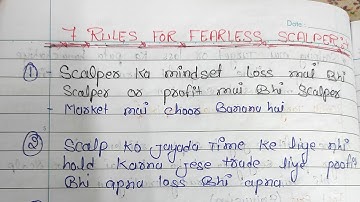 Date:
7 RULES FOR FEARLESS SCALPER:
① - Scalper Ka mindset Loss mai Bhi
Scalper or profit mai Bhi Scalper
- Market mai choor Banana hai
② Scalp Ko Jayada Time Ke liye nhi
hold Karna Jese trade liye profit
Bhi apna loss Bhi apna